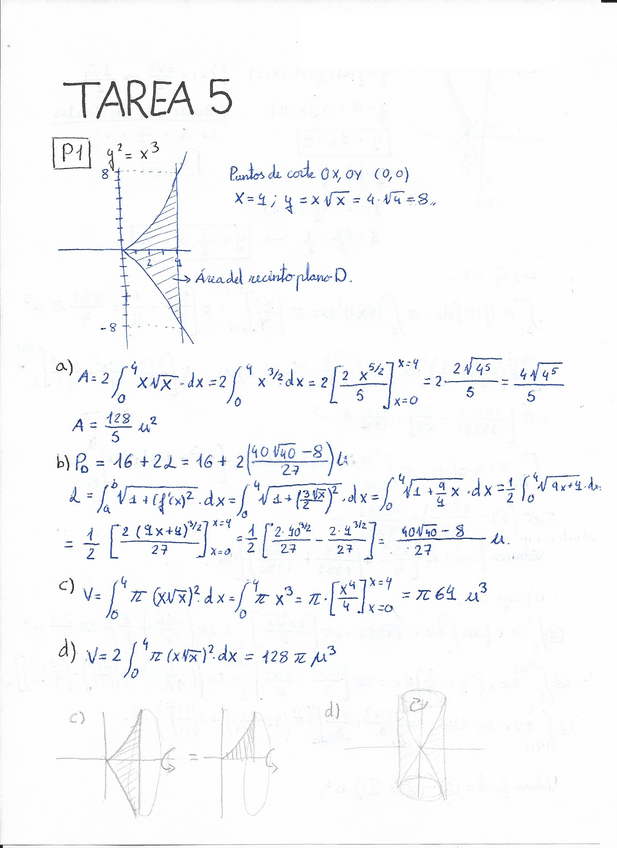 TAREA 5
P1 y² = x³
8
Puntos de corte OX, OY (0,0)
x=4 ; y = x√x = 4·√4 = 8,,
2 4
Área del recinto plano D.
-8
a) A = 2 ∫₀⁴ x√x · dx = 2 ∫₀⁴ x^(3/2) · dx = 2 [2 x^(5/2) / 5]_(x=0)^(x=4) = 2 · 2√4⁵ / 5 = 4√4⁵ / 5
A = 128/5 u²
b) P_D = 16 + 2L = 16 + 2((40√40 - 8)/27) u.
L = ∫ₐᵇ √(1 + (f'(x))²) · dx = ∫₀⁴ √(1 + (3√x/2)²) · dx = ∫₀⁴ √(1 + 9/4 x) · dx = 1/2 ∫₀⁴ √(9x+4) · dx
= 1/2 [2 (9x+4)^(3/2) / 27]_(x=0)^(x=4) = 1/2 [2·40^(3/2)/27 - 2·4^(3/2)/27] = (40√40 - 8)/27 u.
c) V = ∫₀⁴ π (x√x)² · dx = ∫₀⁴ π x³ = π · [x⁴/4]_(x=0)^(x=4) = π 64 u³
d) V = 2 ∫₀⁴ π (x√x)² · dx = 128 π u³
c) =
d)